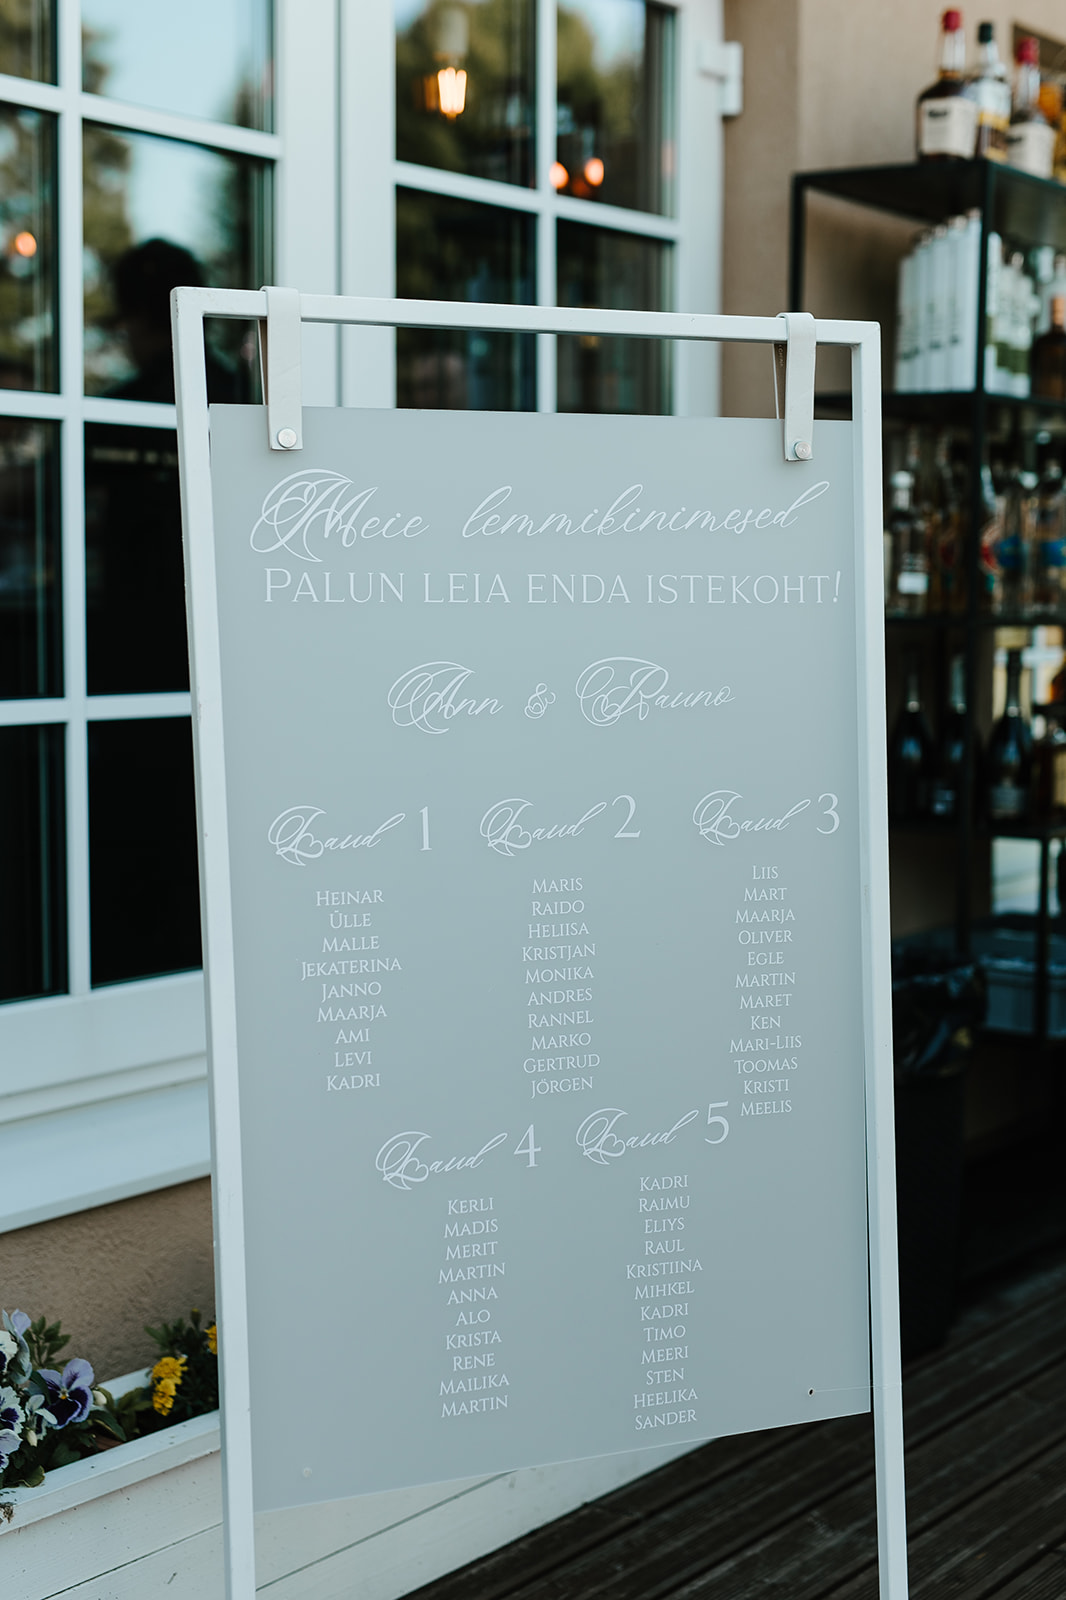 Meie lemmikinimesed
PALUN LEIA ENDA ISTEKOHT!
Ann & Rauno
Laud 1
HEINAR
ÜLLE
MALLE
JEKATERINA
JANNO
MAARJA
AMI
LEVI
KADRI
Laud 2
MARIS
RAIDO
HELIISA
KRISTJAN
MONIKA
ANDRES
RANNEL
MARKO
GERTRUD
JÖRGEN
Laud 3
LIIS
MART
MAARJA
OLIVER
EGLE
MARTIN
MARET
KEN
MARI-LIIS
TOOMAS
KRISTI
MEELIS
Laud 4
KERLI
MADIS
MERIT
MARTIN
ANNA
ALO
KRISTA
RENE
MAILIKA
MARTIN
Laud 5
KADRI
RAIMU
ELIYS
RAUL
KRISTIINA
MIHKEL
KADRI
TIMO
MEERI
STEN
HEELIKA
SANDER